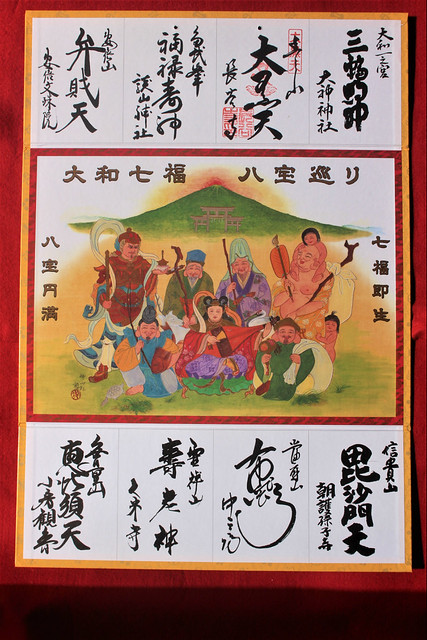 大和一之宮
三輪明神
大神神社
大黒天
長岳寺
多武峯
福禄寿神
談山神社
安倍山
弁財天
安倍文殊院
大和七福 八宝巡り
七福即生
八宝円満
信貴山
毘沙門天
朝護孫子寺
當麻山
布袋
中之坊
霊禅山
寿老神
久米寺
恵比須天
小房観音